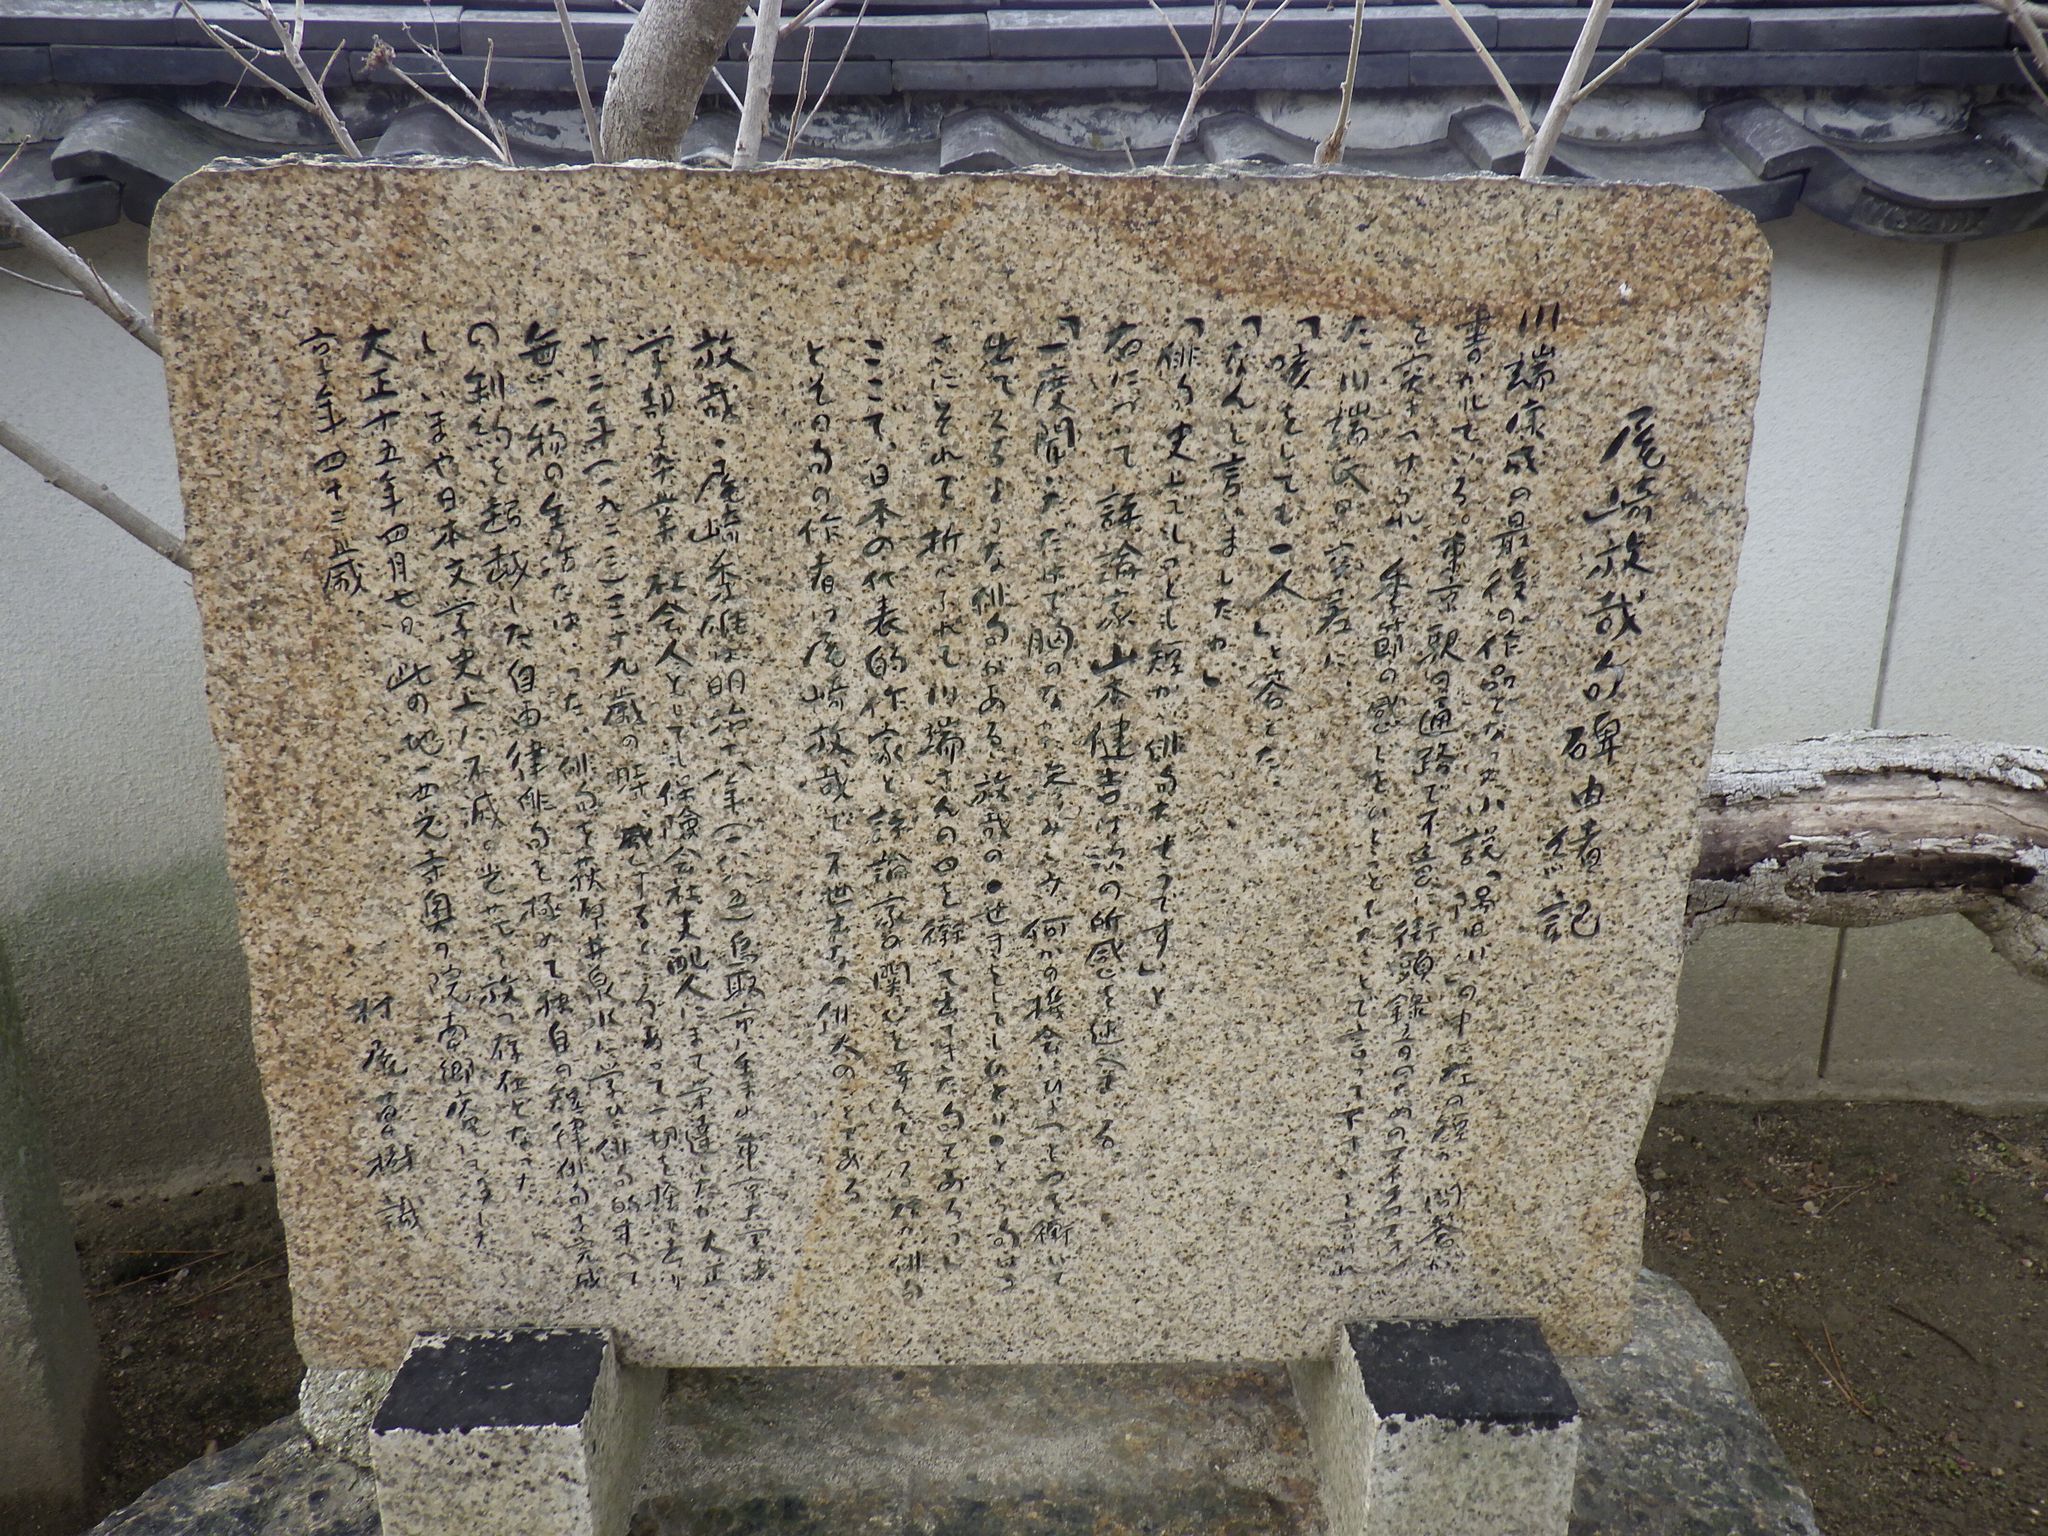 尾崎放哉句碑由緒記
川端康成の最後の作品となった小説「隅田川」の中に左の短い問答が
書かれている。東京駅の通路で不意に街頭録音のためのマイクロフォン
を突きつけられ、季節の感じをひとことでと言って下さいと言われ
た川端氏が実名に
「咳をしても一人」と答えた。
「なんと言いましたか」
「俳句史上でもっとも短かい俳句だそうです」と
右について評論家山本健吉は次の所感を述べている。
「一度聞いただけで胸のなかに定着し、何かの機会にひょっと口を衝いて
出てくるような俳句がある。放哉の「せきをしてもひとり」という句はま
さにそれで、折にふれて川端さんの口を衝いて出てきた句であろうし
ここで、日本の代表的作家と評論家の関心を呼んでいる短い俳句
とその句の作者は尾崎放哉で不世出な俳人のことである
放哉・尾崎秀雄は明治十八年(一八八五)鳥取市に生れ東京大学法
学部を卒業 社会人としても保険会社支配人にまで栄達したが大正
十二年(一九二三)三十九歳の時、感ずるところあって一切を捨て去り
無一物の生活にはいった、俳句を荻原井泉水に学び俳句のすべて
の制約を超越した自由律俳句を極めて独自の短律俳句を完成
し、いまや日本文学史上に不滅の光芒を放つ存在となった
大正十五年四月七日、此の地・西光寺奥の院南郷庵に没した
享年四十二歳
村尾草樹 識